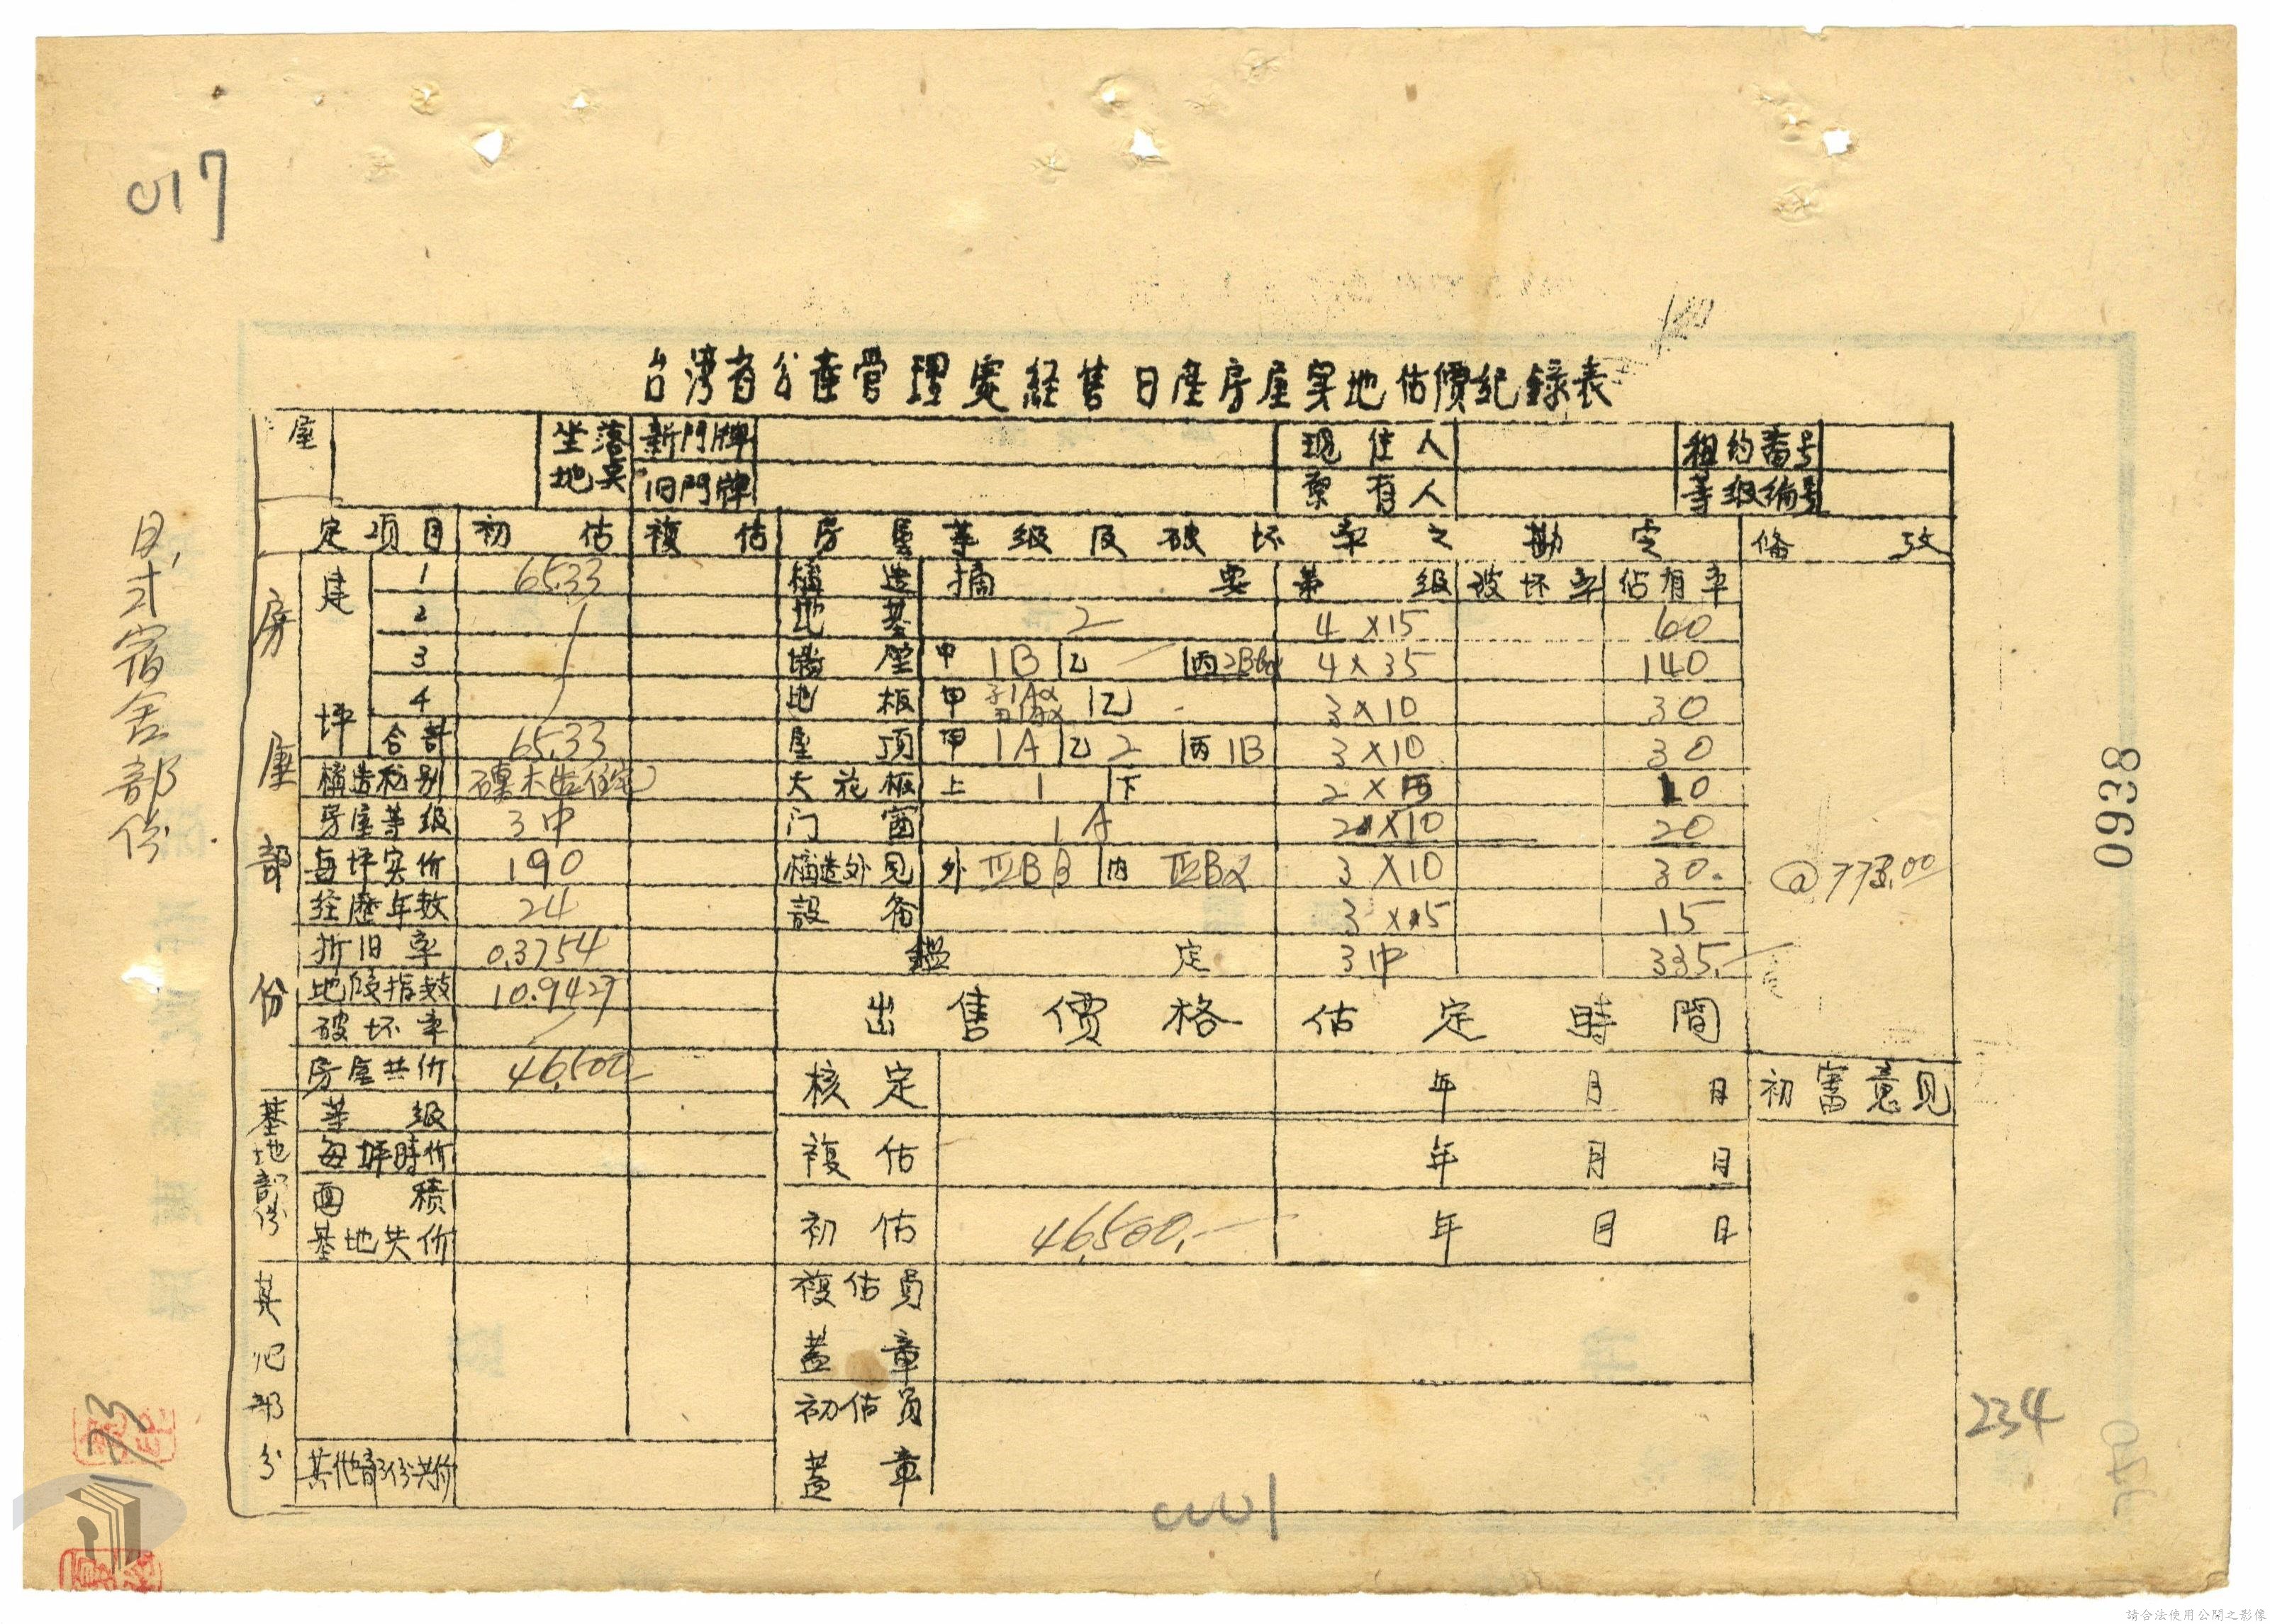 017
台湾省公產管理处経售日產房屋实地估價紀錄表
屋 坐落地吴 新門牌 现住人 租约番号
旧門牌 原有人 等级编号
定项目 初估 複估 房屋等级及破坏率之勘定 俻攷
房屋部份
建坪 1 65.33 構造 摘要 等级 破坏率 佔有率
2 地基 2 4×15 60
3 墻壁 甲 1B 乙 丙 4×35 140
4 地板 甲 乙 3×10 30
合計 65.33 屋顶 甲 1A 乙 2 丙 1B 3×10 30
構造种别 磚木造住宅 天花板 上 1 下 2×5 10
房屋等级 3中 门窗 1A 2×10 20
每坪实价 190 構造外见 外 ⅡBβ 内 ⅡBα 3×10 30. @ 773.00
经歷年数 24 設备 3×5 15
折旧率 0.3754 鑑定 3中 335.
地段指数 10.9427 出售價格 估定時間
破坏率
房屋共价 46,500 核定 年 月 日 初審意見
基地部份
等级
每坪時价 複估 年 月 日
面積
基地共价 初估 46,500.- 年 月 日
其他部份
複估員
蓋章
初估員
其他部份共价 蓋章
日式宿舍部份
0938
234
請合法使用公開之影像